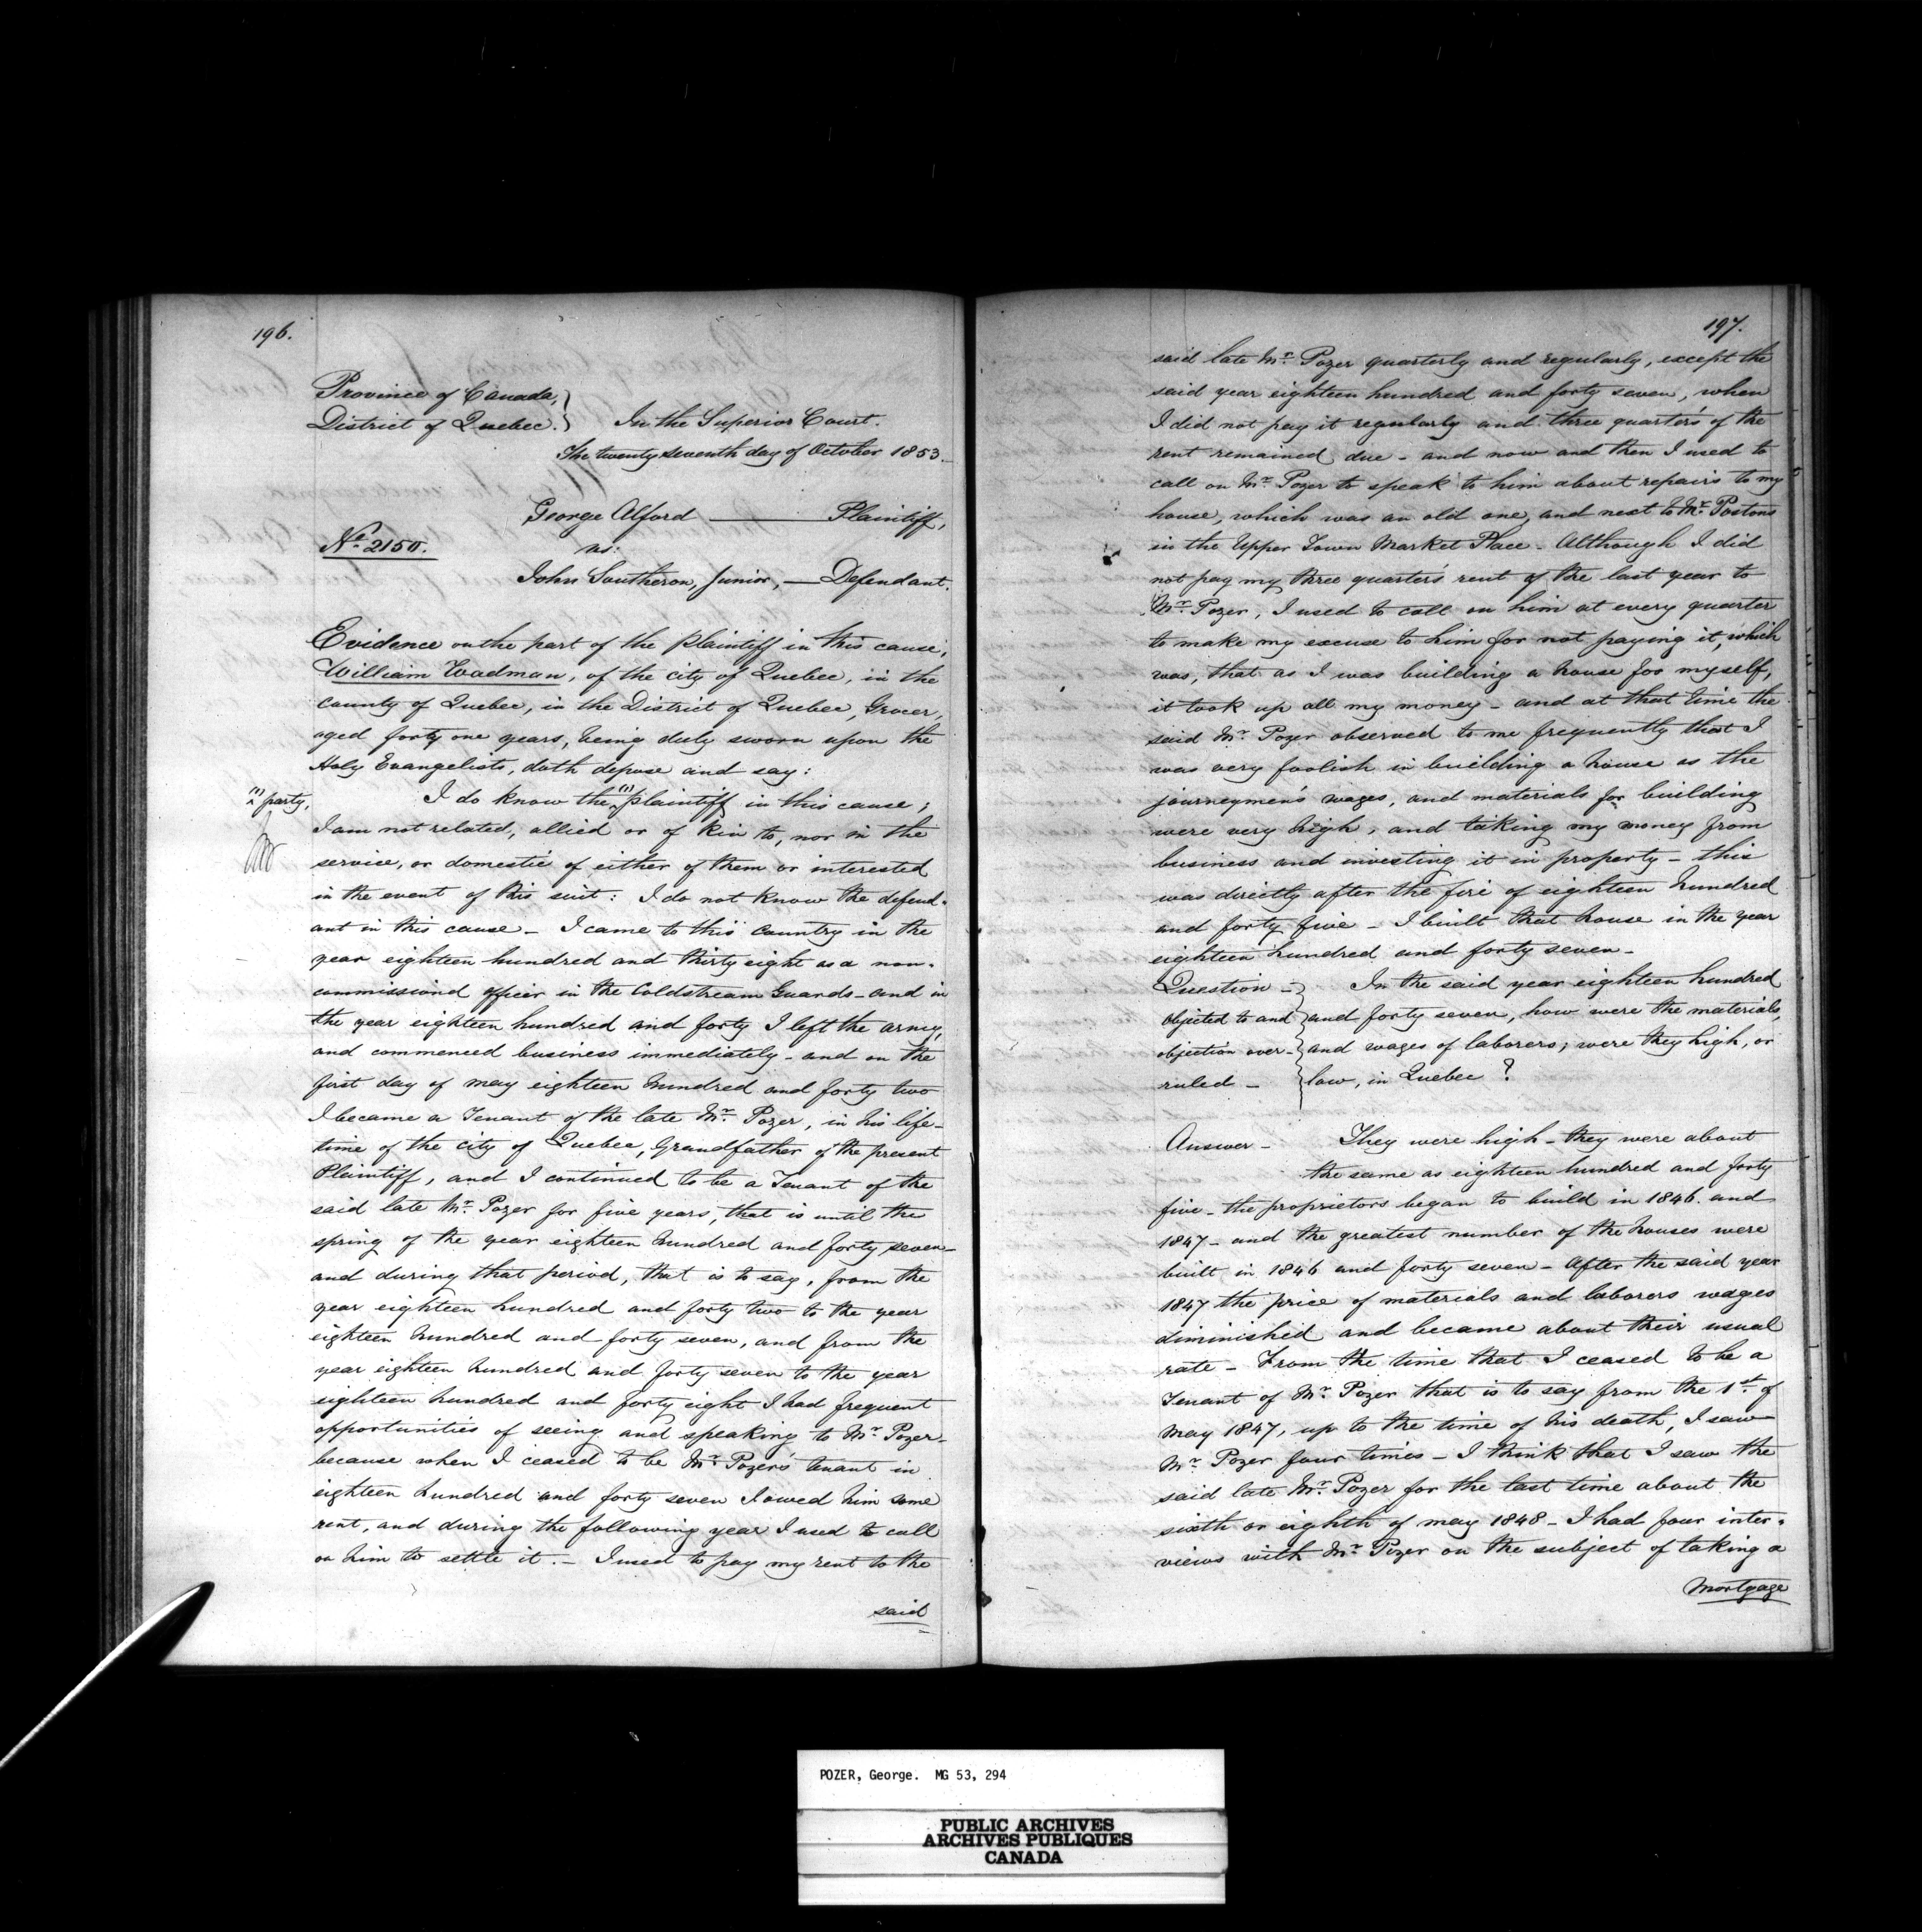 196.
Province of Canada, }
District of Quebec. } In the Superior Court.
The twenty seventh day of October 1853.
George Alford — Plaintiff,
No. 2150.
vs:
John Southeron, Junior, — Defendant.
Evidence on the part of the plaintiff in this cause,
William Wadman, of the city of Quebec, in the
county of Quebec, in the District of Quebec, Grocer,
aged forty one years, being duly sworn upon the
Holy Evangelists, doth depose and say:
(1) party,
I do know the (1) plaintiff in this cause;
I am not related, allied or of kin to, nor in the
service, or domestic of either of them or interested
in the event of this suit: I do not know the defend-
ant in this cause - I came to this Country in the
year eighteen hundred and thirty eight as a non-
commissiond officer in the Coldstream Guards - and in
the year eighteen hundred and forty I left the army,
and commenced business immediately - and on the
first day of may eighteen hundred and forty two
I became a Tenant of the late Mr. Pozer, in his life-
time of the city of Quebec, Grandfather of the present
Plaintiff, and I continued to be a Tenant of the
said late Mr. Pozer for five years, that is until the
spring of the year eighteen hundred and forty seven -
and during that period, that is to say, from the
year eighteen hundred and forty two to the year
eighteen hundred and forty seven, and from the
year eighteen hundred and forty seven to the year
eighteen hundred and forty eight I had frequent
opportunities of seeing and speaking to Mr. Pozer -
because when I ceased to be Mr. Pozer's tenant in
eighteen hundred and forty seven I owed him some
rent, and during the following year I used to call
on him to settle it. - I used to pay my rent to the
said
197.
said late Mr. Pozer quarterly and regularly, except the
said year eighteen hundred and forty seven, when
I did not pay it regularly and three quarter's of the
rent remained due - and now and then I used to
call on Mr. Pozer to speak to him about repairs to my
house, which was an old one, and next to Mr. Postons
in the Upper Town Market Place - Although I did
not pay my three quarter's rent of the last year to
Mr. Pozer, I used to call on him at every quarter
to make my excuse to him for not paying it, which
was, that as I was building a house for myself,
it took up all my money - and at that time the
said Mr. Pozer observed to me frequently that I
was very foolish in building a house as the
journeymen's wages, and materials for building
were very high, and taking my money from
business and investing it in property - this
was directly after the fire of eighteen hundred
and forty five - I built that house in the year
eighteen hundred and forty seven -
Question - } In the said year eighteen hundred
objected to and } and forty seven, how were the materials,
objection over- } and wages of laborers; were they high, or
ruled - } low, in Quebec ?
Answer - They were high - they were about
the same as eighteen hundred and forty
five - the proprietors began to build in 1846 and
1847 - and the greatest number of the houses were
built in 1846 and forty seven - After the said year
1847 the price of materials and laborers wages
diminished and became about their usual
rate - From the time that I ceased to be a
Tenant of Mr. Pozer that is to say from the 1st. of
May 1847, up to the time of his death, I saw
Mr. Pozer four times - I think that I saw the
said late Mr. Pozer for the last time about the
sixth or eighth of may 1848 - I had four inter-
views with Mr. Pozer on the subject of taking a
Mortgage
POZER, George. MG 53, 294
PUBLIC ARCHIVES
ARCHIVES PUBLIQUES
CANADA